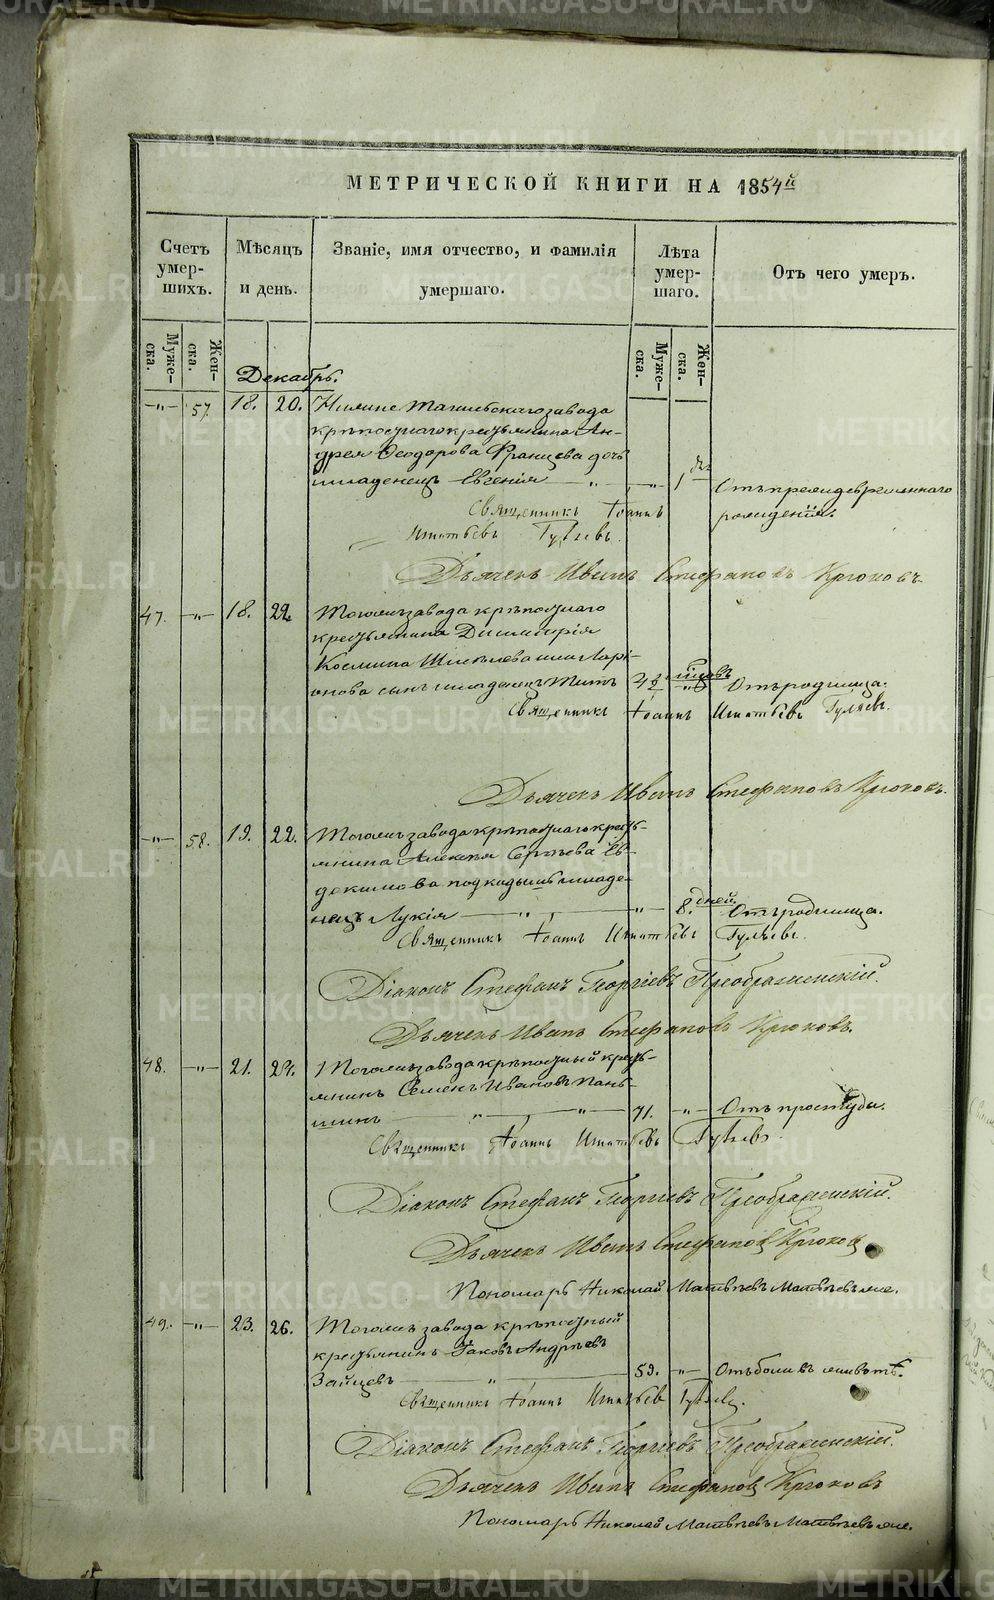 МЕТРИЧЕСКОЙ КНИГИ НА 1854й
Счетъ умер-шихъ.
Мѣсяцъ и день.
Званіе, имя отчество, и фамилія умершаго.
Лѣта умер-шаго.
Отъ чего умеръ.
Муже-ска.
Жен-ска.
Муже-ска.
Жен-ска.
Декабрь.
-"- 57. 18. 20. Нижне Тагильскаго завода
крѣпостнаго крестьянина Ан-
дрея Ѳеодорова Францева дочь
младенецъ Евгенія — " — " — 1 дн
Отъ преждевременнаго
рожденія.
Священникъ Іоаннъ
Игнатьевъ Гуляевъ.
Дьячекъ Иванъ Стефановъ Крюковъ.
47. -"- 18. 22. Тогожъ завода крѣпостнаго
крестьянина Димитрія
Космина
онова сынъ младенецъ Титъ
Отъ родимца.
Священникъ Іоаннъ Игнатьевъ Гуляевъ.
Дьячекъ Иванъ Стефановъ Крюковъ.
-"- 58. 19. 22. Тогожъ завода крѣпостнаго кресть-
янина Алексѣя Сергѣева Ев-
докимова подкидышъ младе-
нецъ Лукія — " — " — 8. дней Отъ родимца.
Священникъ Іоаннъ Игнатьевъ Гуляевъ.
Діаконъ Стефанъ Георгіевъ Преображенскій.
Дьячекъ Иванъ Стефановъ Крюковъ.
48. -"- 21. 24. Тогожъ завода крѣпостный кресть-
янинъ Семенъ Ивановъ Пань-
шинъ — " — " — 71. -"- Отъ простуды.
Священникъ Іоаннъ Игнатьевъ Гуляевъ.
Діаконъ Стефанъ Георгіевъ Преображенскій.
Дьячекъ Иванъ Стефановъ Крюковъ
Пономарь Николай Матвѣевъ Матвѣевъ же.
49. -"- 23. 26. Тогожъ завода крѣпостный
крестьянинъ Іаковъ Андрѣевъ
Зайцевъ — " — 59. -"- Отъ боли въ животѣ.
Священникъ Іоаннъ Игнатьевъ Гуляевъ.
Діаконъ Стефанъ Георгіевъ Преображенскій.
Дьячекъ Иванъ Стефановъ Крюковъ
Пономарь Николай Матвѣевъ Матвѣевъ же.
METRIKI.GASO-URAL.RU